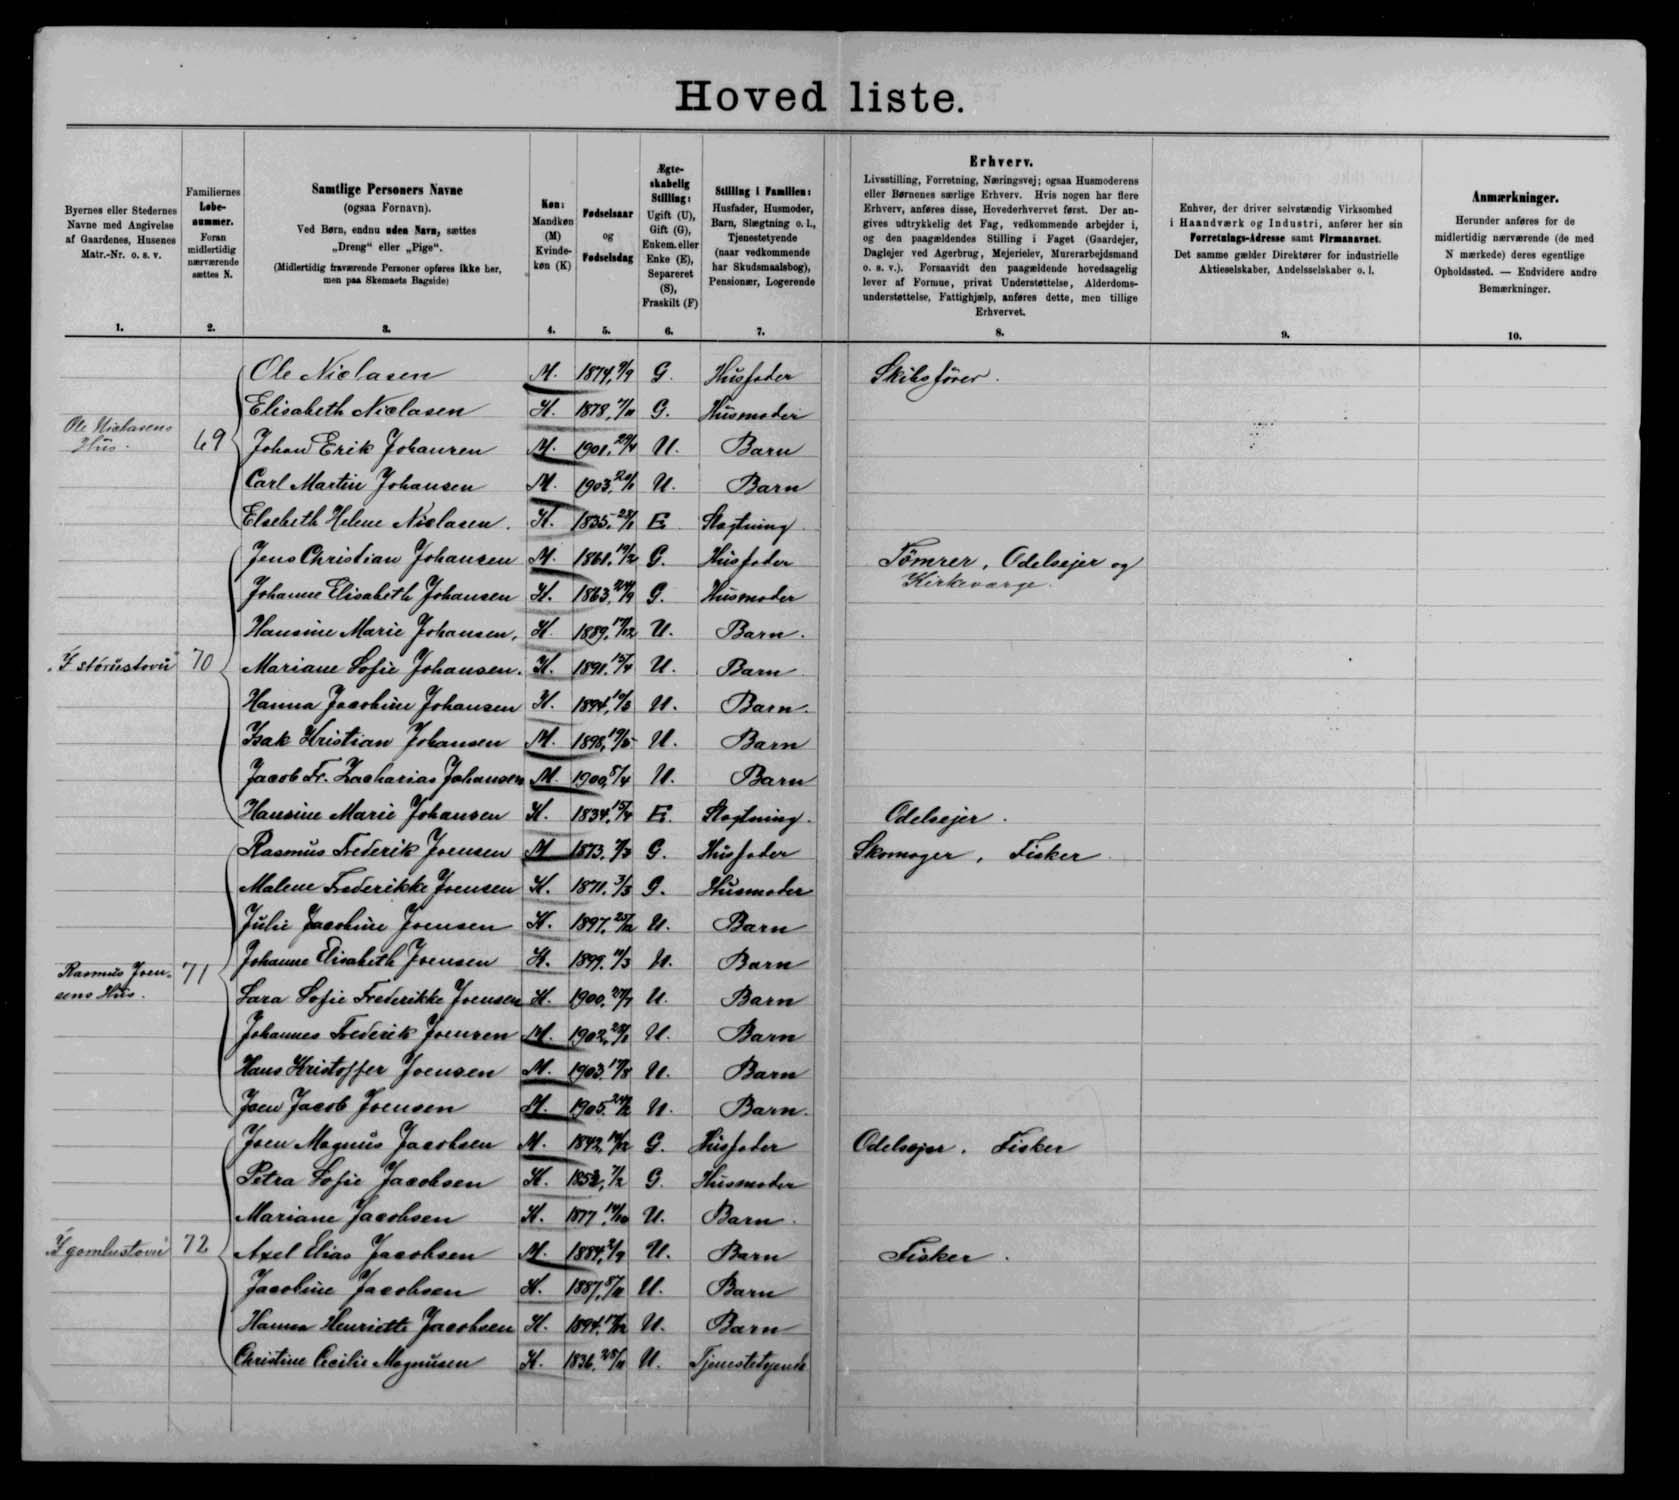 Hoved liste.
Byernes eller Stedernes
Navne med Angivelse
af Gaardenes, Husenes
Matr.-Nr. o. s. v.
1.
Familiernes
Løbe-
nummer.
Foran
midlertidig
nærværende
sættes N.
2.
Samtlige Personers Navne
(ogsaa Fornavn).
Ved Børn, endnu uden Navn, sættes
„Dreng“ eller „Pige“.
(Midlertidig fraværende Personer opføres ikke her,
men paa Skemaets Bagside)
3.
Køn:
Mandkøn
(M)
Kvinde-
køn (K)
4.
Fødselsaar
og
Fødselsdag
5.
Ægte-
skabelig
Stilling:
Ugift (U),
Gift (G),
Enkem. eller
Enke (E),
Separeret
(S),
Fraskilt (F)
6.
Stilling i Familien:
Husfader, Husmoder,
Barn, Slægtning o. l.,
Tjenestetyende
(naar vedkommende
har Skudsmaalsbog),
Pensionær, Logerende
7.
Erhverv.
Livsstilling, Forretning, Næringsvej; ogsaa Husmoderens
eller Børnenes særlige Erhverv. Hvis nogen har flere
Erhverv, anføres disse, Hovederhvervet først. Der an-
gives udtrykkelig det Fag, vedkommende arbejder i,
og den paagældendes Stilling i Faget (Gaardejer,
Daglejer ved Agerbrug, Mejerielev, Murerarbejdsmand
o. s. v.). Forsaavidt den paagældende hovedsagelig
lever af Formue, privat Understøttelse, Alderdoms-
understøttelse, Fattighjælp, anføres dette, men tillige
Erhvervet.
8.
Enhver, der driver selvstændig Virksomhed
i Haandværk og Industri, anfører her sin
Forretnings-Adresse samt Firmanavnet.
Det samme gælder Direktører for industrielle
Aktieselskaber, Andelsselskaber o. l.
9.
Anmærkninger.
Herunder anføres for de
midlertidig nærværende (de med
N mærkede) deres egentlige
Opholdssted. — Endvidere andre
Bemærkninger.
10.
Ole Niclasen M. 1874, G. Husfader Skibsfører.
Elisabeth Niclasen K. 1878, G. Husmoder
Ole Niclasens
Hus. 69 Johan Erik Johansen M. 1901, 29/4 U. Barn
Carl Martin Johansen M. 1903, U. Barn
Elsebeth Helene Niclasen. K. 1835, E. Slægtning.
Jens Christian Johansen M. 1861, 19/2 G. Husfader Tömrer, Odelsejer og
Kirkeværge.
Johanne Elisabeth Johansen K. 1863, 24/9 G. Husmoder
Hansine Marie Johansen, K. 1889, 17/12 U. Barn.
„I stórustovu“ 70 Mariane Sofie Johansen. K. 1891, 15/4 U. Barn.
Hanna Jacobine Johansen K. 1894, U. Barn.
Isak Kristian Johansen M. 1898, 19/5 U. Barn
Jacob Fr. Zacharias Johansen M. 1900, 8/4 U. Barn
Hansine Marie Johansen K. 1834, 15/4 E. Slægtning. Odelsejer.
Rasmus Frederik Joensen M 1873, G. Husfader Skomager, Fisker
Malene Frederikke Joensen K. 1871, 3/3 G. Husmoder
Julie Jacobine Joensen K. 1897, U. Barn
Rasmus Joen-
sens Hus. 71 Johanne Elisabeth Joensen K. 1899, U. Barn
Sara Sofie Frederikke Joensen K. 1900, 27/7 U. Barn
Johannes Frederik Joensen M. 1902, U. Barn
Hans Kristoffer Joensen M. 1903, 17/8 U. Barn
Joen Jacob Joensen M. 1905, U. Barn.
Joen Magnus Jacobsen M. 1842, G. Husfader Odelsejer, Fisker
Petra Sofie Jacobsen K. 1852, 7/2 G. Husmoder
Mariane Jacobsen K. 1877, 14/10 U. Barn.
„I gomlustovu“ 72 Axel Elias Jacobsen M. 1884, 2/9 U. Barn Fisker.
Jacobine Jacobsen K. 1887, 8/11 U. Barn
Hanna Henriette Jacobsen K. 1894, 17/12 U. Barn
Christine Cecilie Magnusen K. 1836, 28/11 U. Tjenestetyende